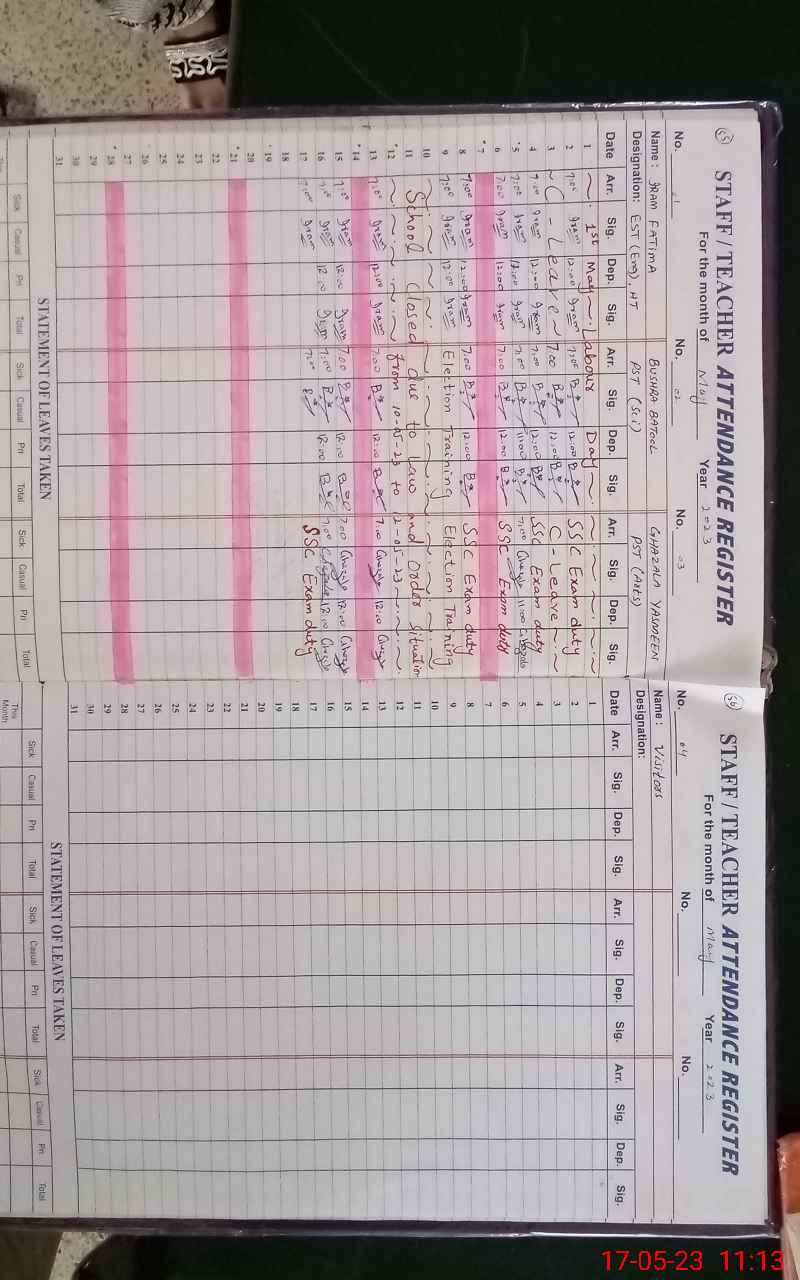 65
STAFF / TEACHER ATTENDANCE REGISTER
For the month of May Year 2023
No. 01 No. 02 No. 03
Name: IRAM FATIMA BUSHRA BATOOL GHAZALA YASMEEN
Designation: EST (Eng), HT PST (Sci) PST (Arts)
Date Arr. Sig. Dep. Sig. Arr. Sig. Dep. Sig. Arr. Sig. Dep. Sig.
1 ~ 1st May ~ Labour Day ~
2 7:00 Iram 12:00 Iram 7:00 12:00 SSC Exam duty
3 ~ C - Leave ~ 7:00 12:00 C - Leave ~
4 7:00 Iram 12:00 Iram 7:00 12:00 SSC Exam duty
5 7:00 Iram 12:00 Iram 7:00 11:00 7:00 11:00
6 7:00 Iram 12:00 Iram 7:00 12:00 SSC Exam duty
7
8 7:00 Iram 12:00 Iram 7:00 12:00 SSC Exam duty
9 7:00 Iram 12:00 Iram Election Training Election Training
10
11 School Closed due to Law and Order Situation
12 from 10-05-23 to 12-05-23
13 7:00 Iram 12:00 Iram 7:00 12:00 7:00 12:00
14
15 7:00 Iram 12:00 Iram 7:00 12:00 7:00 12:00
16 7:00 Iram 12:00 Iram 7:00 12:00 7:00 12:00
17 7:00 Iram 7:00 SSC Exam duty
18
19
20
21
22
23
24
25
26
27
28
29
30
31
STATEMENT OF LEAVES TAKEN
Sick Casual Pri Total Sick Casual Pri Total Sick Casual Pri Total
56
STAFF / TEACHER ATTENDANCE REGISTER
For the month of May Year 2023
No. 04 No. No.
Name: Visitors
Designation:
Date Arr. Sig. Dep. Sig. Arr. Sig. Dep. Sig. Arr. Sig. Dep. Sig.
1
2
3
4
5
6
7
8
9
10
11
12
13
14
15
16
17
18
19
20
21
22
23
24
25
26
27
28
29
30
31
STATEMENT OF LEAVES TAKEN
Sick Casual Pri Total Sick Casual Pri Total Sick Casual Pri Total
This Month
17-05-23 11:13